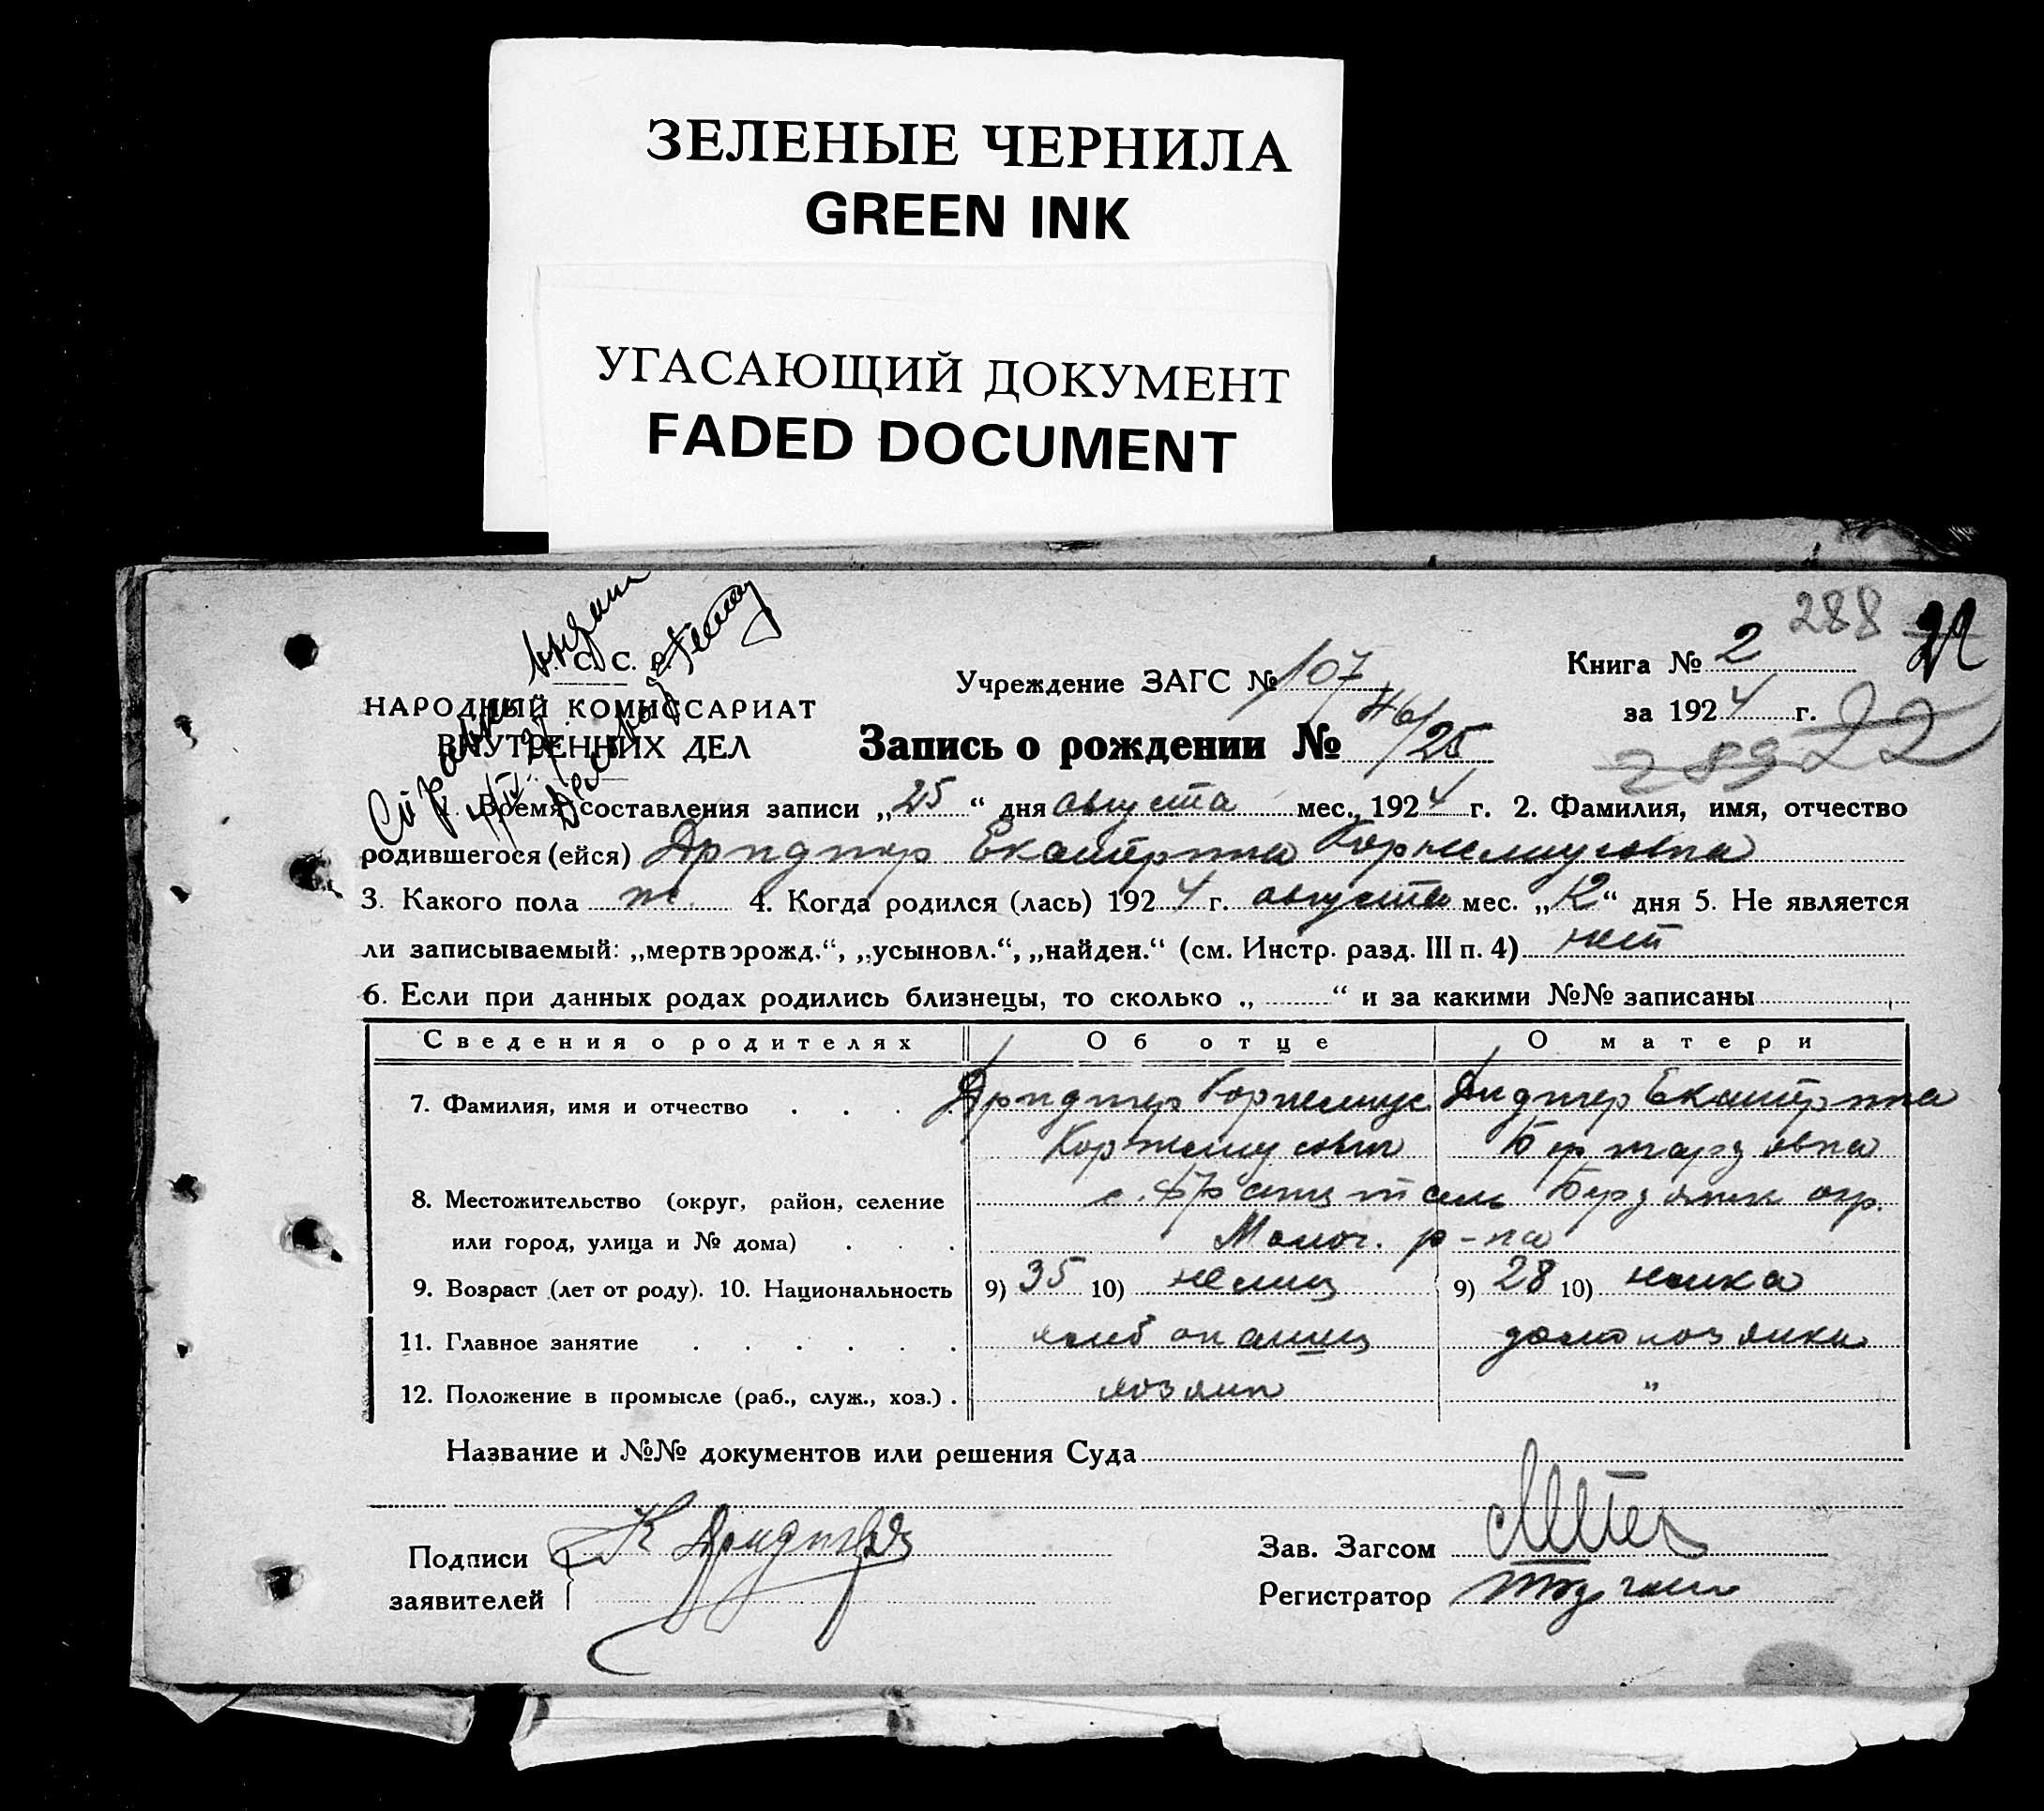 ЗЕЛЕНЫЕ ЧЕРНИЛА
GREEN INK
УГАСАЮЩИЙ ДОКУМЕНТ
FADED DOCUMENT
288
С. С.
Учреждение ЗАГС № 107
Книга № 2
НАРОДНЫЙ КОМИССАРИАТ
за 1924 г.
22
ВНУТРЕННИХ ДЕЛ
Запись о рождении № 46/25
289
1. Время составления записи „25“ дня августа мес., 1924 г. 2. Фамилия, имя, отчество
родившегося (ейся) Дридигер Екатерина Корнелиусовна
3. Какого пола ж. 4. Когда родился (лась) 1924 г. августа мес. „12“ дня 5. Не является
ли записываемый: „мертворожд.“, „усыновл.“, „найден.“ (см. Инстр. разд. III п. 4) нет
6. Если при данных родах родились близнецы, то сколько „ “ и за какими №№ записаны
Сведения о родителях Об отце О матери
7. Фамилия, имя и отчество . . . Дридигер Корнелиус Дидигер Екатерина
Корнелиусович Бернгардовна
8. Местожительство (округ, район, селение с. Францталь Бердянск окр.
или город, улица и № дома) . . . Молоч. р-на
9. Возраст (лет от роду). 10. Национальность 9) 35 10) немец 9) 28 10) немка
11. Главное занятие . . . . . . хлебопашец домохозяйка
12. Положение в промысле (раб., служ., хоз.) . хозяин "
Название и №№ документов или решения Суда
Подписи К Дридигер
Зав. Загсом
заявителей
Регистратор